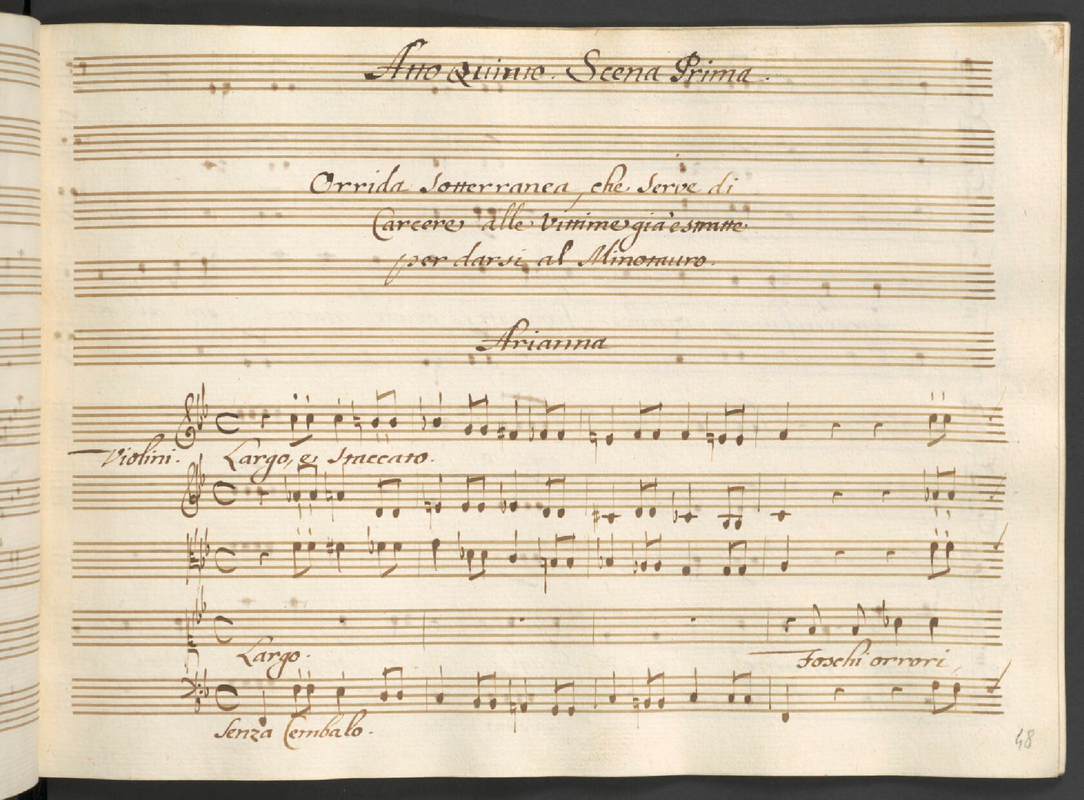 Atto Quinto. Scena Prima.
Orrida Sotterranea, che serve di
Carcere alle Vittime già estratte
per darsi al Minotauro.
Arianna
Violini. Largo, e Staccato.
Largo.
Foschi orrori,
Senza Cembalo.
48